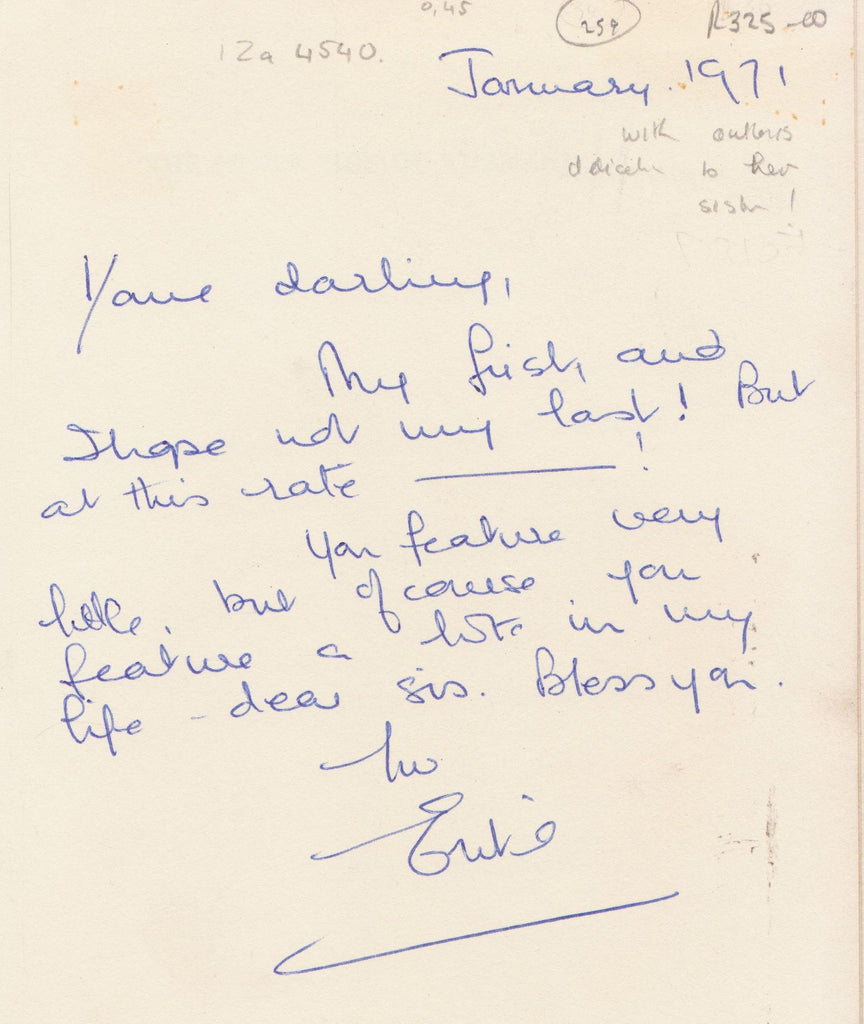 0,45
259
R325-00
IZa 4540.
January. 1971
with authors
to her
sister!
darling,
My first, and
I hope not my last! But
at this rate ————!
You feature very
little, but ofcourse you
feature a lot in my
life - dear sis. Bless you.